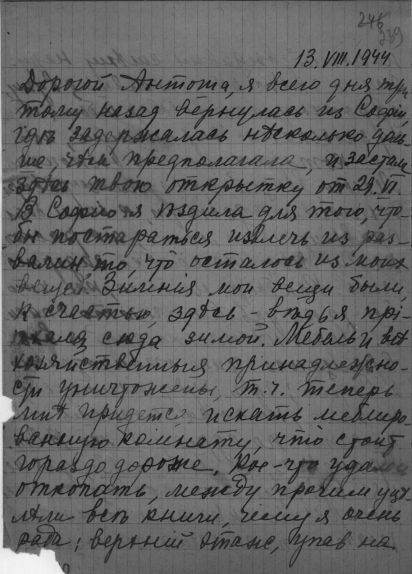 246
239
13.VIII.1944
Дорогой Антоша, я всего дня три
тому назад вернулась из Софіи,
гдѣ задержалась нѣсколько доль-
ше чѣм предполагала, и застала
здѣсь твою открытку от 29.VI.
В Софію я ѣздила для того, что-
бы постараться извлечь из раз-
валин то, что осталось из моих
вещей. Зимнія мои вещи были,
к счастью, здѣсь - вѣдь я прі-
ѣхала сюда зимой. Мебель и всѣ
хозяйственныя принадлежно-
сти уничтожены, т.ч. теперь
мнѣ придется искать меблиро-
ванную комнату, что стоит
гораздо дороже. Кое-что удалось
откопать, между прочим уцѣ-
лѣли всѣ книги, чему я очень
рада; верхній этаж, упав на